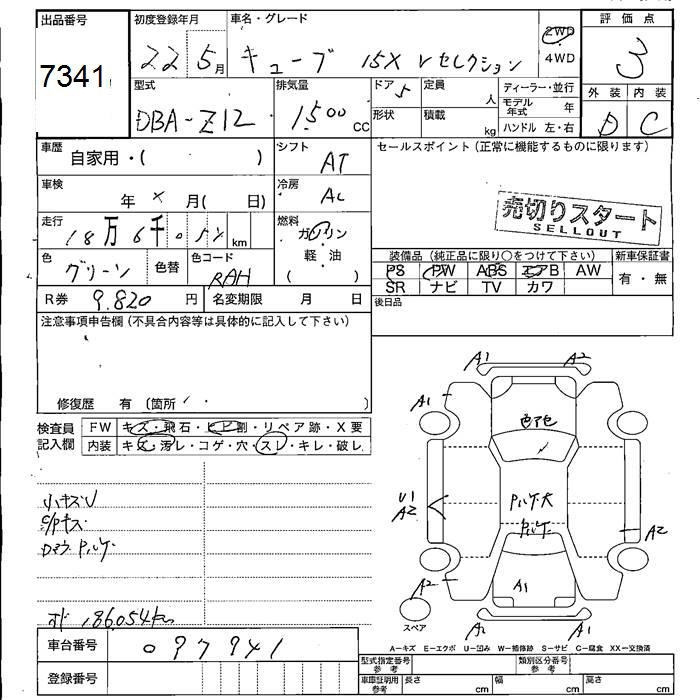 出品番号
7341
初度登録年月
22 5月
車名・グレード
キューブ 15X Vセレクション
2WD
4WD
評価点
3
外装 内装
D C
型式
DBA-Z12
排気量
1500 CC
ドア 5
定員 人
形状
積載 kg
ディーラー・並行
モデル年式 年
ハンドル 左・右
車歴
自家用・( )
シフト
AT
セールスポイント(正常に機能するものに限ります)
車検
年 × 月( 日)
冷房
AC
売切りスタート
SELLOUT
走行
18万6千052 km
燃料
ガソリン
・
軽 油
( )
色
グリーン
色替
色コード
RAH
装備品(純正品に限り○をつけて下さい)
新車保証書
PS PW ABS エアB AW
SR ナビ TV カワ
有・無
R券 9.820 円
名変期限 月 日
後日品
注意事項申告欄(不具合内容等は具体的に記入して下さい)
修復歴 有(箇所 )
検査員
記入欄
FW キズ・飛石・ヒビ割・リペア跡・X要
内装 キズ・汚レ・コゲ・穴・スレ・キレ・破レ
小キズU
C/Pキス
ロメウ Pルケ
オド 186054km
車台番号
097941
登録番号
A1 A2
A1
色アセ
Pルケ大
Pルケ
U1
A2
A2
A2
A1
A2 A1
スペア
A-キズ E-エクボ U-凹み W-補修跡 S-サビ C-腐食 XX-交換済
型式指定番号
参考
類別区分番号
参考
車庫証明用
参考
長さ cm
幅 cm
高さ cm